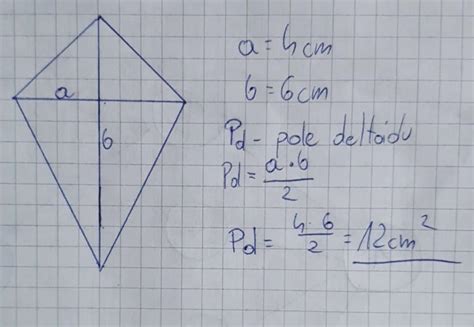 a = 4 cm
a
b = 6 cm
b
Pd - pole deltoidu
Pd = a · b / 2
Pd = 4 · 6 / 2 = 12 cm²